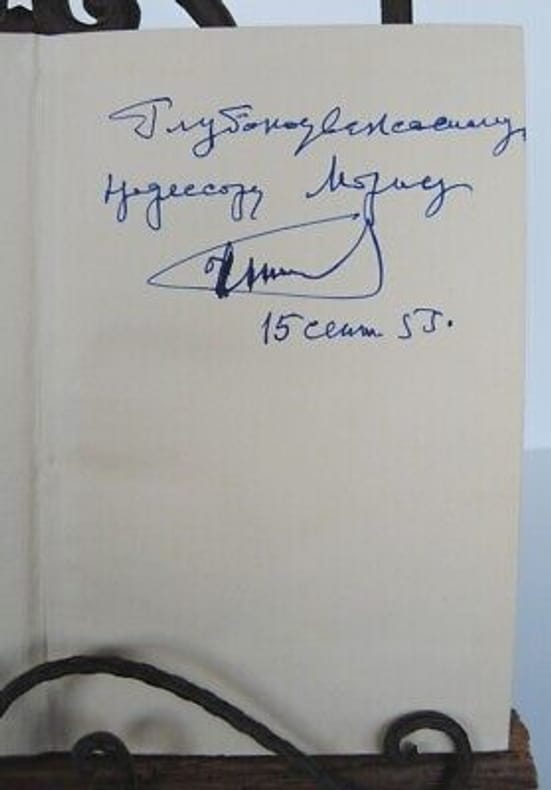 Глубокоуважаемому
профессору Морису
15 сент 53.